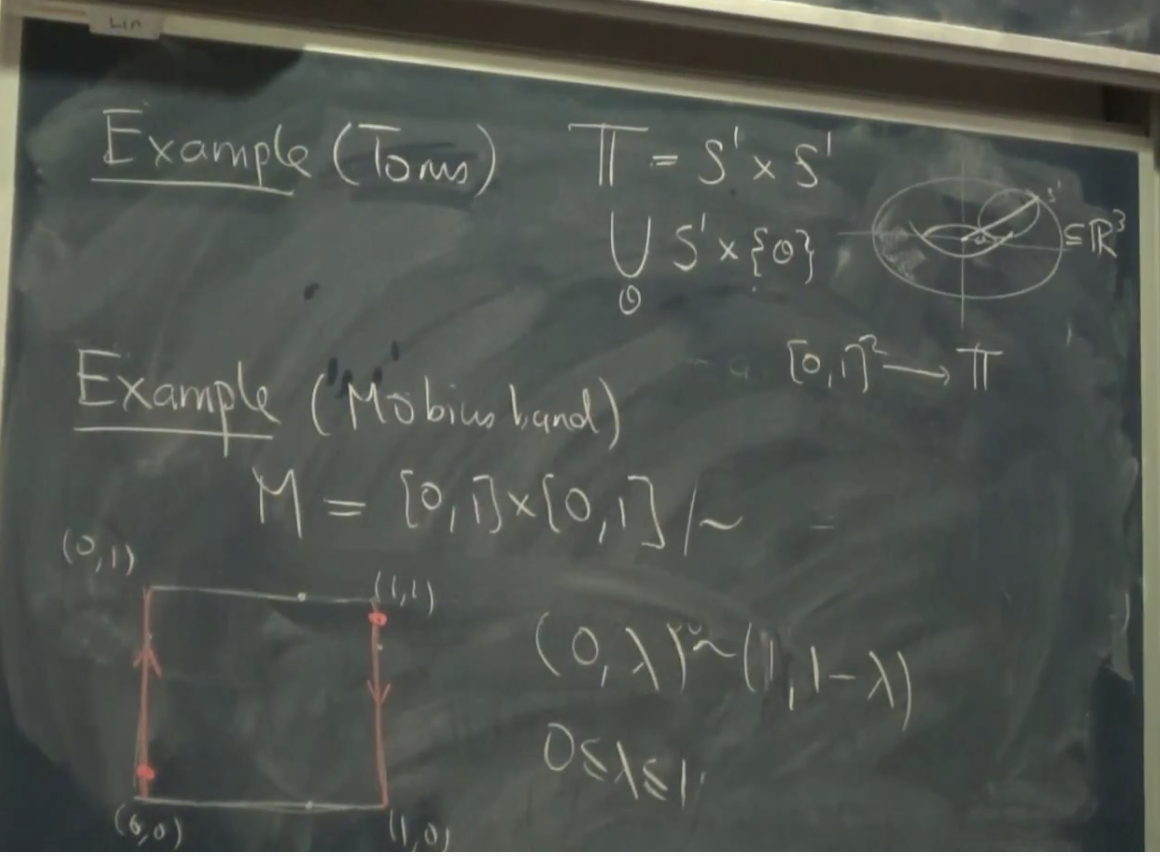 Lin
Example (Torus) 𝕋 = S¹ × S¹
⋃ S¹ × {θ}
θ
S¹
a
⊆ ℝ³
[0,1]² ⟶ 𝕋
Example (Möbius band)
M = [0,1]×[0,1] /~
(0,1)
(1,1)
(0,λ) ~ (1,1-λ)
0≤λ≤1
(0,0)
(1,0)